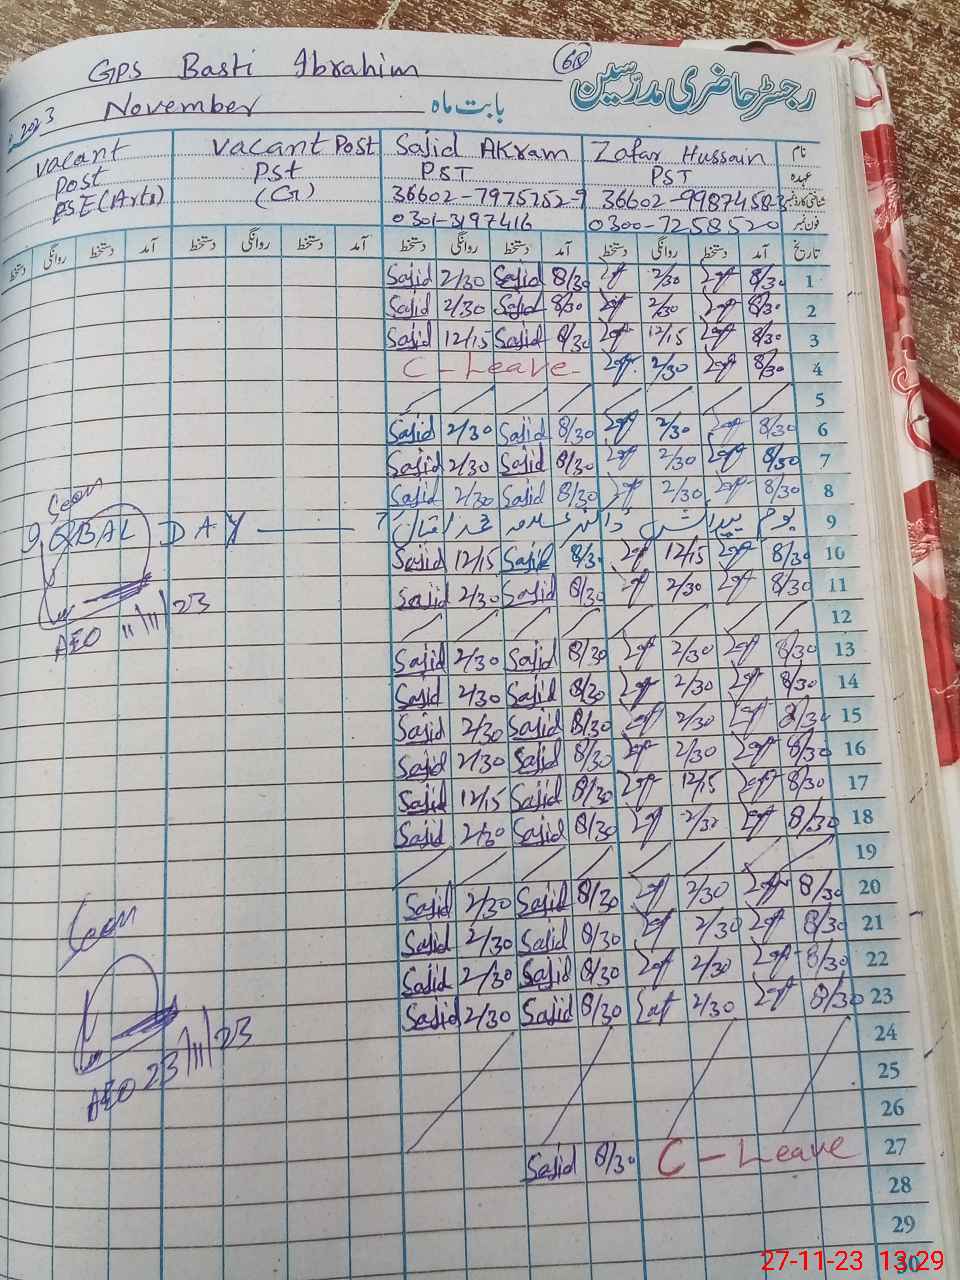 GPS Basti Ibrahim 60
رجسٹر حاضری مدرسین
2023 November بابت ماہ
vacant Post PSE (Arts) vacant Post PST (G) Sajid Akram Zafar Hussain نام
PST PST عہدہ
36602-7975252-9 36602-9987458-3 شناختی کارڈ نمبر
0301-3197416 0300-7258520 فون نمبر
دستخط روانگی دستخط آمد دستخط روانگی دستخط آمد دستخط روانگی دستخط آمد دستخط روانگی دستخط آمد تاریخ
Sajid 2/30 Sajid 8/30 2/30 8/30 1
Sajid 2/30 Sajid 8/30 2/30 8/30 2
Sajid 12/15 Sajid 8/30 12/15 8/30 3
C - Leave - 2/30 8/30 4
5
Sajid 2/30 Sajid 8/30 2/30 8/30 6
Sajid 2/30 Sajid 8/30 2/30 8/30 7
Sajid 2/30 Sajid 8/30 2/30 8/30 8
Seen
IQBAL DAY یوم پیدائش ڈاکٹر علامہ محمد اقبال 9
Sajid 12/15 Sajid 8/30 12/15 8/30 10
Sajid 2/30 Sajid 8/30 2/30 8/30 11
AEO 11/11/23
12
Sajid 2/30 Sajid 8/30 2/30 8/30 13
Sajid 2/30 Sajid 8/30 2/30 8/30 14
Sajid 2/30 Sajid 8/30 2/30 8/30 15
Sajid 2/30 Sajid 8/30 2/30 8/30 16
Sajid 12/15 Sajid 8/30 12/15 8/30 17
Sajid 2/30 Sajid 8/30 2/30 8/30 18
19
Sajid 2/30 Sajid 8/30 2/30 8/30 20
Seen
Sajid 2/30 Sajid 8/30 2/30 8/30 21
Sajid 2/30 Sajid 8/30 2/30 8/30 22
Sajid 2/30 Sajid 8/30 2/30 8/30 23
AEO 23/11/23
24
25
26
Sajid 8/30 C - Leave 27
28
29
30
27-11-23 13:29